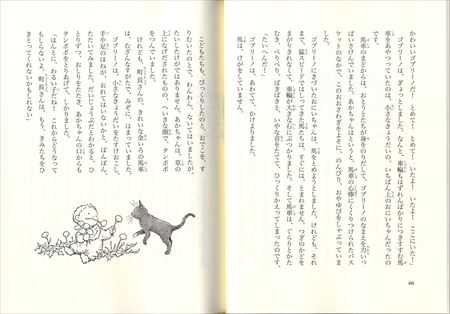 かわいいゴブリーノだ！　とめて！　とめて！　いたよ！　いたよ！　ここにいた！」
ゴブリーノは、ぎょっとしました。なんと、車輪もはずれんばかりにつきすすむ馬
車をあやつっていたのは、小さなきょうだいの、いちばん上のおにいちゃんだったの
です。
馬車のまどからは、おとうとたちが身をのりだして、ゴブリーノのなまえを力いっ
ぱいさけんでいました。あかちゃんはというと、馬車の心棒にくくりつけられたバス
ケットのなかで、このおおさわぎをよそに、のんびり、おやゆびをしゃぶっていま
した。
ゴブリーノにきづいたおにいちゃんは、馬をとめようとしました。けれども、それ
まで、猛スピードではしってきた馬たちは、すぐには、とまれません。つぎのかどを
まがりきれなくて、車輪が大きな石にぶつかりました。そして馬車は、ぐらりとかた
むき、べりべり、ばきばきと、いやな音をたてて、ひっくりかえってしまいました。
たいへんだ！
ゴブリーノは、あわてて、かけよりました。
馬は、けがをしていません。
66
こどもたちも、びっくりしたのと、おでこを、す
りむいたのとで、わんわん、ないてはいましたが、
たいしたけがではありません。あかちゃんは、草の
上になげだされたものの、へいきな顔で、タンポポ
をつんでいました。
けれども、町長さんの、きれいな金いろの馬車
は、むざんなすがたで、みぞに、はまっています。
ゴブリーノは、小さなきょうだいをたすけおこし、
手や足のほねが、おれてはいないかと、ぽんぽん、
たたいてみました。だいじょうぶだとわかると、ひ
とりずつ、おしりをたたき、あかちゃんの口から
タンポポをとりあげて、しかりました。
「ほんとに、わるい子だね！　これからどうなって
もしらないよ。町長さんは、もう、きみたちをひ
きとってくれないかもしれない」